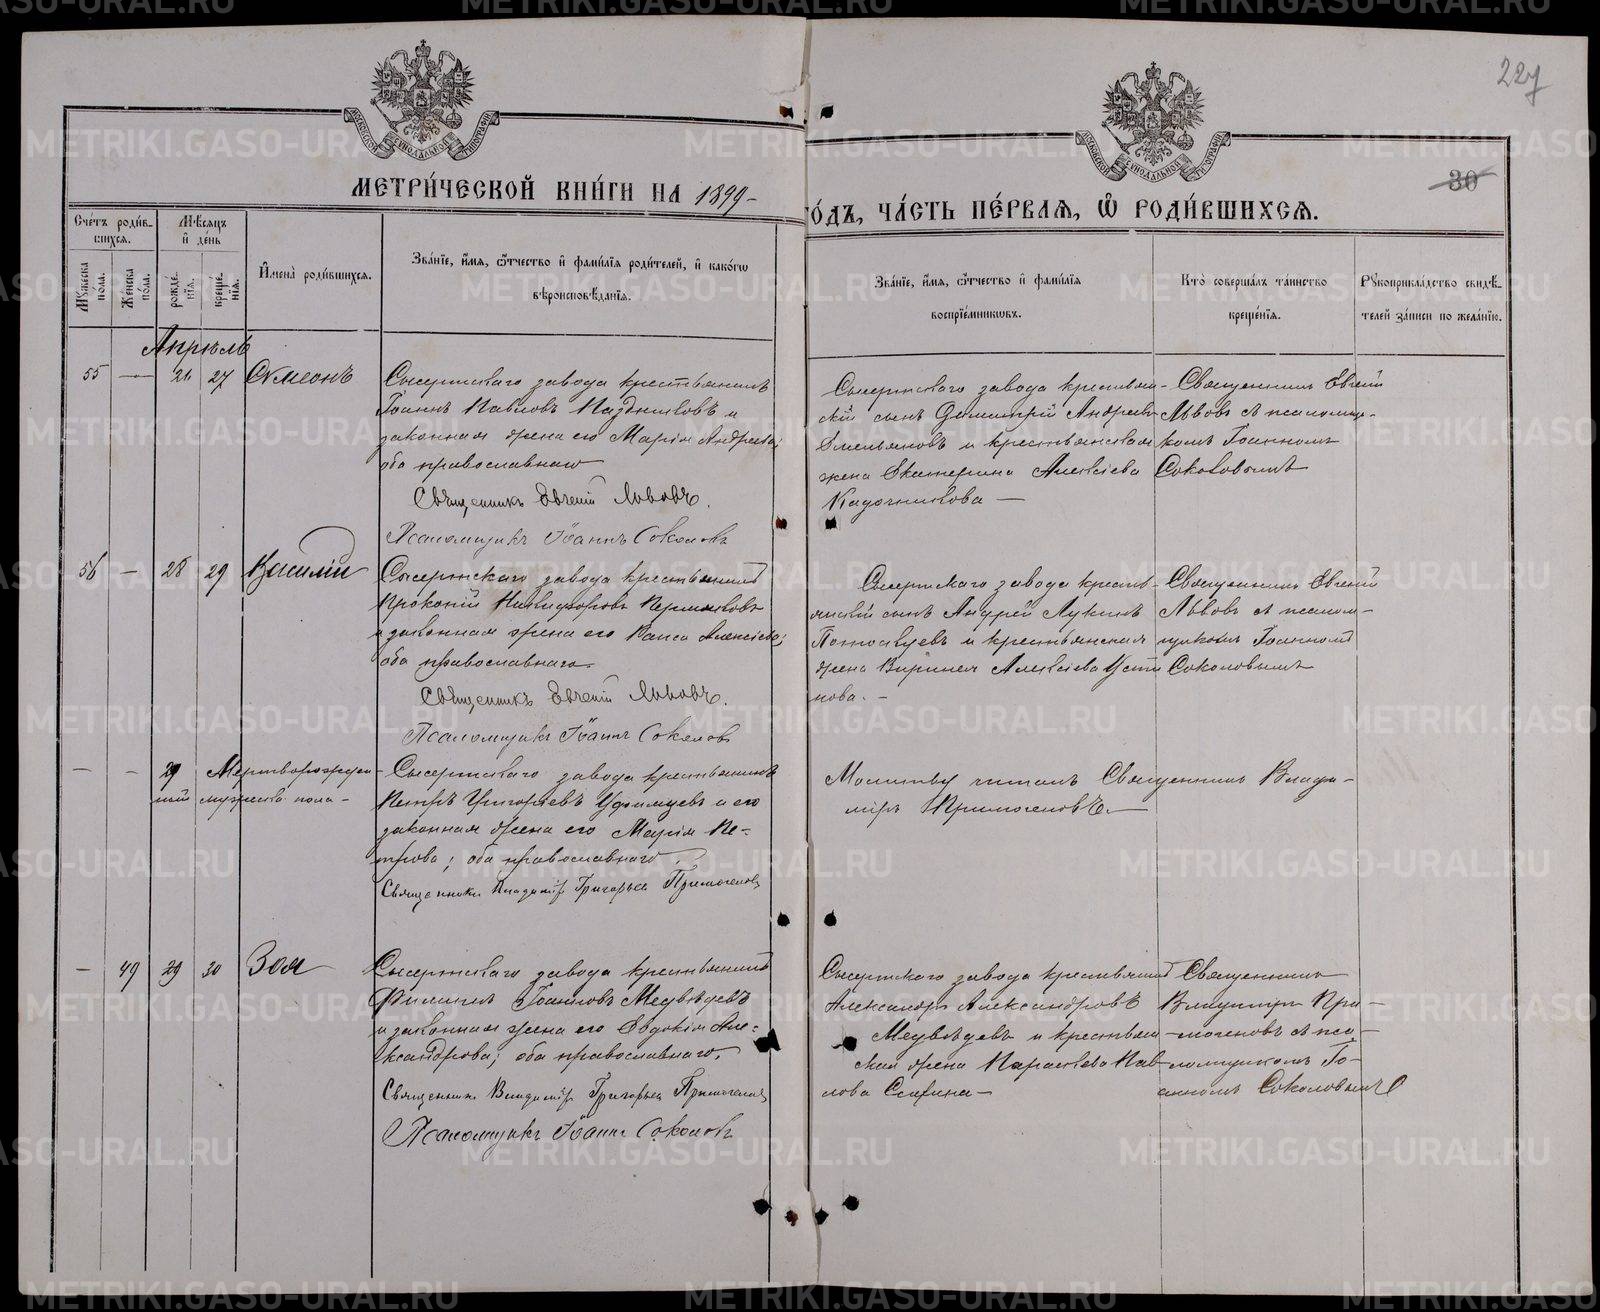 227
30
МОСКОВСКОЙ СѴНОДАЛЬНОЙ ТИПОГРАФІИ
МОСКОВСКОЙ СѴНОДАЛЬНОЙ ТИПОГРАФІИ
МЕТРИ́ЧЕСКОЙ КНИ́ГИ НА 1899 -
ГО́ДЪ, ЧА́СТЬ ПЕ́РВАЯ, Ѽ РОДИ́ВШИХСЯ.
Сче́тъ роди́в-
шихся.
Мѣсяцъ
и де́нь
Мꙋжеска по́ла.
Же́нска по́ла.
рожде́нїя.
креще́нїя.
И́мена̀ роди́вшихся.
Зва́нїе, и́мя, ѻ́тчество и фами́лїя роди́телей, и како́гѡ
вѣроисповѣ́данїя.
Зва́нїе, и́мя, ѻ́тчество и фами́лїя
воспрїе́мникѡвъ.
Кто̀ соверша́лъ та́инство
креще́нїя.
Рꙋкоприкла́дство свидѣ́-
телей за́писи по жела́нїю.
Апрѣль
55 — 26 27 Сѵмеонъ
Сысертскаго завода крестьянинъ
Іоаннъ Павловъ Паздниковъ и
законная жена его Марія Андреева,
оба православнаго
Священникъ Евгеній Львовъ.
Псаломщикъ Іоаннъ Соколовъ
Сысертскаго завода крестьян-
скій сынъ Димитрій Андреевъ
Емельяновъ и крестьянская
жена Екатерина Алексіева
Кадочникова —
Священникъ Евгеній
Львовъ съ псаломщи-
комъ Іоанномъ
Соколовымъ
56 — 28 29 Василій
Сысертскаго завода крестьянинъ
Прокопій Никифоровъ Пермяковъ
и законная жена его Раиса Алексіева;
оба православнаго.
Священникъ Евгеній Львовъ.
Псаломщикъ Іоаннъ Соколовъ
Сысертскаго завода кресть-
янскій сынъ Андрей Лукинъ
и крестьянская
жена Виринея Алексіева Усти
нова. -
Священникъ Евгеній
Львовъ съ псалом-
щикомъ Іоанномъ
Соколовымъ
— — 29 Мертворожден-
ный мужеска пола -
Сысертскаго завода крестьянинъ
Петръ Григорьевъ Уфимцевъ и его
законная жена его Марія Пе-
трова; оба православнаго.
Священникъ Владиміръ Григорьевъ Примогеновъ
Молитву читалъ Священникъ Влади-
міръ Примогеновъ. —
— 49 29 30 Зоя
Сысертскаго завода крестьянинъ
Филиппъ Іоанновъ Медвѣдевъ
и законная жена его Евдокія Але-
ксандрова; оба православнаго.
Священникъ Владиміръ Григорьевъ Примогеновъ
Псаломщикъ Іоаннъ Соколовъ
Сысертскаго завода крестьянинъ
Александръ Александровъ
Медвѣдевъ и крестьян-
ская жена Параскева Пав-
лова —
Священникъ
Владиміръ При-
могеновъ съ пса-
ломщикомъ Іо-
анномъ Соколовымъ
METRIKI.GASO-URAL.RU